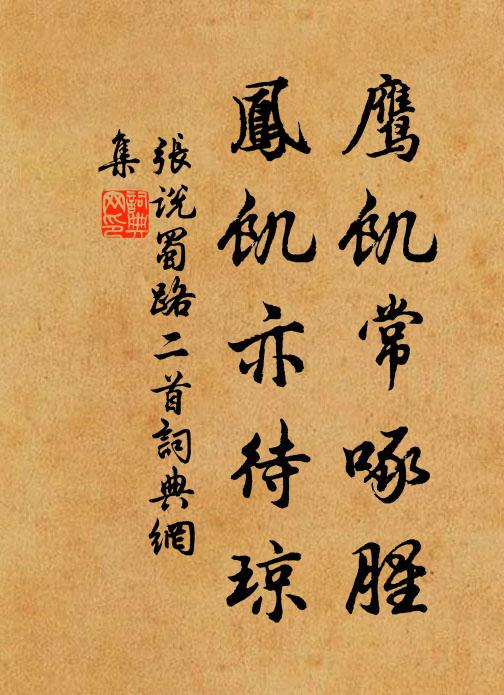 鷹飢常啄腥
鳳飢亦待琼
張说蜀路二首詞典網
集
詞典网印